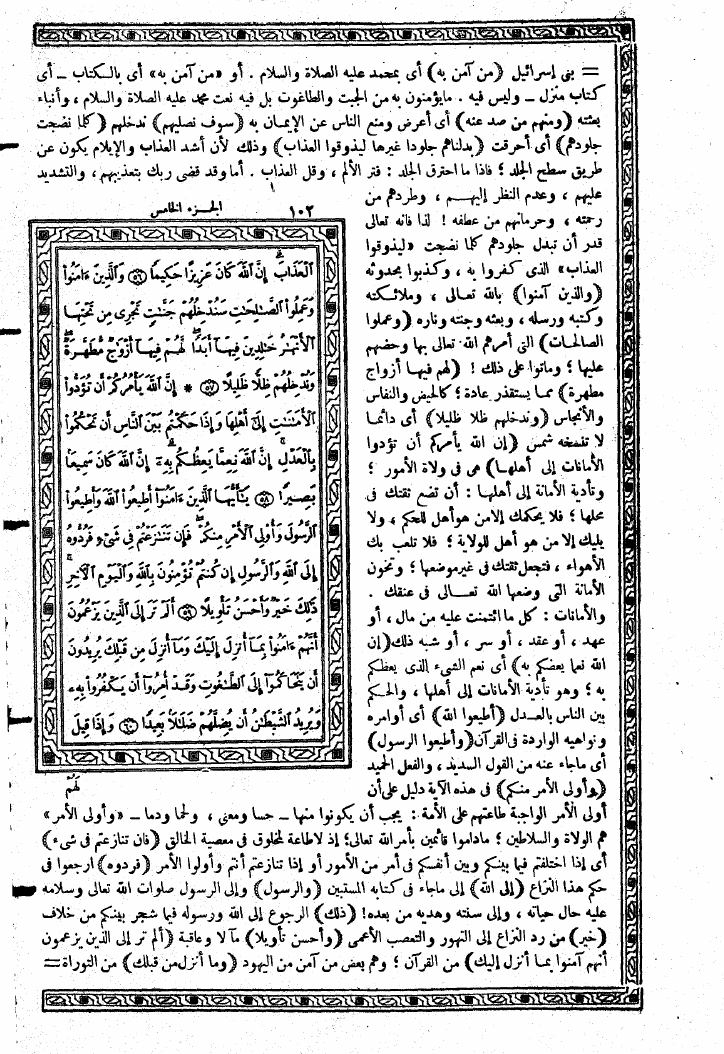 = بنى إسرائيل (من آمن به) أى بمحمد عليه الصلاة والسلام . أو «من آمن به» أى بالكتاب ــ أى
كتاب منزل ــ وليس فيه . مايؤمنون به من الجبت والطاغوت بل فيه نعت محمد عليه الصلاة والسلام ، وأنباء
بعثته (ومنهم من صد عنه) أى أعرض ومنع الناس عن الإيمان به (سوف نصليهم) ندخلهم (كلما نضجت
جلودهم) أى أحرقت (بدلناهم جلودا غيرها ليذوقوا العذاب) وذلك لأن أشد العذاب والإيلام يكون عن
طريق سطح الجلد ؛ فاذا ما احترق الجلد : فتر الألم ، وقل العذاب . أما وقد قضى ربك بتعذيبهم ، والتشديد
عليهم ، وعدم النظر إليهم ، وطردهم من
رحمته ، وحرمانهم من عطفه ! لذا فانه تعالى
قدر أن تبدل جلودهم كلما نضجت «ليذوقوا
العذاب» الذى كفروا به ، وكذبوا بحدوثه
(والذين آمنوا) بالله تعالى ، وملائكته
وكتبه ورسله ، وبعثه وجنته وناره (وعملوا
الصالحات) التى أمرهم الله تعالى بها وحضهم
عليها ؛ وماتوا على ذلك ! (لهم فيها أزواج
مطهرة) مما يستقذر عادة ؛ كالحيض والنفاس
والأنجاس (وندخلهم ظلا ظليلا) أى دائما
لا تنسخه شمس (إن الله يأمركم أن تؤدوا
الأمانات إلى أهلها) هى فى ولاة الأمور ؛
وتأدية الأمانة إلى أهلها : أن تضع ثقتك فى
محلها ؛ فلا يحكمك إلا من هو أهل للحكم ، ولا
يليك إلا من هو أهل للولاية ؛ فلا تلعب بك
الأهواء ، فتجعل ثقتك فى غير موضعها ؛ وتخون
الأمانة التى وضعها الله تعالى فى عنقك .
والأمانات : كل ما ائتمنت عليه من مال ، أو
عهد ، أو عقد ، أو سر ، أو شبه ذلك (إن
الله نعما يعظكم به) أى نعم الشىء الذى يعظكم
به ؛ وهو تأدية الأمانات إلى أهلها ، والحكم
بين الناس بالعدل (أطيعوا الله) أى أوامره
ونواهيه الواردة فى القرآن (وأطيعوا الرسول)
أى ماجاء عنه من القول السديد ، والفعل الحميد
(وأولى الأمر منكم) فى هذه الآية دليل على أن
١٠٢ الجزء الخامس
ٱلْعَذَابَ إِنَّ ٱللَّهَ كَانَ عَزِيزًا حَكِيمًا ٥٦ وَٱلَّذِينَ ءَامَنُوا۟
وَعَمِلُوا۟ ٱلصَّـٰلِحَـٰتِ سَنُدْخِلُهُمْ جَنَّـٰتٍ تَجْرِى مِن تَحْتِهَا
ٱلْأَنْهَـٰرُ خَـٰلِدِينَ فِيهَآ أَبَدًا لَّهُمْ فِيهَآ أَزْوَٰجٌ مُّطَهَّرَةٌ
وَنُدْخِلُهُمْ ظِلًّا ظَلِيلًا ٥٧ * إِنَّ ٱللَّهَ يَأْمُرُكُمْ أَن تُؤَدُّوا۟
ٱلْأَمَـٰنَـٰتِ إِلَىٰٓ أَهْلِهَا وَإِذَا حَكَمْتُم بَيْنَ ٱلنَّاسِ أَن تَحْكُمُوا۟
بِٱلْعَدْلِ إِنَّ ٱللَّهَ نِعِمَّا يَعِظُكُم بِهِۦٓ إِنَّ ٱللَّهَ كَانَ سَمِيعًۢا
بَصِيرًا ٥٨ يَـٰٓأَيُّهَا ٱلَّذِينَ ءَامَنُوٓا۟ أَطِيعُوا۟ ٱللَّهَ وَأَطِيعُوا۟
ٱلرَّسُولَ وَأُو۟لِى ٱلْأَمْرِ مِنكُمْ فَإِن تَنَـٰزَعْتُمْ فِى شَىْءٍ فَرُدُّوهُ
إِلَى ٱللَّهِ وَٱلرَّسُولِ إِن كُنتُمْ تُؤْمِنُونَ بِٱللَّهِ وَٱلْيَوْمِ ٱلْـَٔاخِرِ
ذَٰلِكَ خَيْرٌ وَأَحْسَنُ تَأْوِيلًا ٥٩ أَلَمْ تَرَ إِلَى ٱلَّذِينَ يَزْعُمُونَ
أَنَّهُمْ ءَامَنُوا۟ بِمَآ أُنزِلَ إِلَيْكَ وَمَآ أُنزِلَ مِن قَبْلِكَ يُرِيدُونَ
أَن يَتَحَاكَمُوٓا۟ إِلَى ٱلطَّـٰغُوتِ وَقَدْ أُمِرُوٓا۟ أَن يَكْفُرُوا۟ بِهِۦ
وَيُرِيدُ ٱلشَّيْطَـٰنُ أَن يُضِلَّهُمْ ضَلَـٰلًۢا بَعِيدًا ٦٠ وَإِذَا قِيلَ
لَهُمْ
أولى الأمر الواجبة طاعتهم على الأمة : يجب أن يكونوا منها ــ حسا ومعنى ، ولحما ودما ــ «وأولى الأمر»
هم الولاة والسلاطين ؛ ماداموا قائمين بأمر الله تعالى ؛ إذ لا طاعة لمخلوق فى معصية الخالق (فان تنازعتم فى شىء)
أى إذا اختلفتم فيما بينكم وبين أنفسكم فى أمر من الأمور أو إذا تنازعتم أنتم وأولوا الأمر (فردوه) ارجعوا فى
حكم هذا النزاع (إلى الله) إلى ماجاء فى كتابه المستبين (والرسول) وإلى الرسول صلوات الله تعالى وسلامه
عليه حال حياته ، وإلى سنته وهديه من بعده ! (ذلك) الرجوع إلى الله ورسوله فيما شجر بينكم من خلاف
(خير) من رد النزاع إلى التهور والتعصب الأعمى (وأحسن تأويلا) مآلا وعاقبة (ألم تر إلى الذين يزعمون
أنهم آمنوا بما أنزل إليك) من القرآن ؛ وهم بعض من آمن من اليهود (وما أنزل من قبلك) من التوراة =